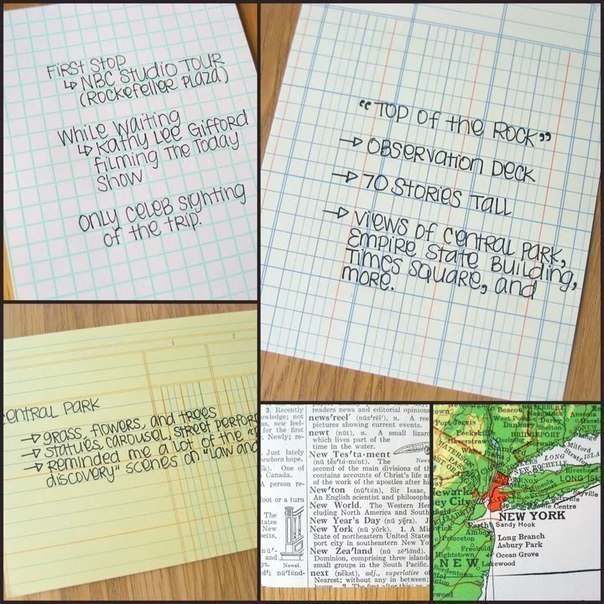 First Stop
↳ NBC Studio Tour
(Rockefeller Plaza)
While Waiting
↳ Kathy Lee Gifford
filming The Today
Show
Only celeb sighting
of the trip.
"Top of the Rock"
→ Observation Deck
→ 70 Stories Tall
→ Views of Central Park,
Empire State Building,
Times Square, and
more.
Central Park
→ grass, flowers, and trees
→ statues, carousel, street perfor
→ Reminded me a lot of the
discovery" scenes on "Law and
3. Recently
not
for the first
Newly; re-
Just lately
hope.
One of
Canada.
A person re-
foot or a turn
The
States
New
readers news and editorial opinions
news'reel (nūz'rēl'), n. A ree
pictures showing current events.
newt (nūt), n. A small lizard
which lives part of the
time in the water.
New Tes'ta-ment
(nū tĕs'tȧ-mĕnt). The
second of the main divisions of th
contains accounts of Christ's life a
of the work of the apostles after h
New'ton (nū'tŭn), Sir Isaac.
An English scientist and philosoph
New World. The Western He
cluding North America and South
New Year's Day (nū yērz).
New York (nū yôrk). 1. A Mi
State of northeastern United State
port city in southeastern New Yo
New Zea'land (nū zē'lănd).
Dominion, comprising three islands
small groups in the South Pacific.
next (nĕkst), adj., superlative o
Nearest; without any in between;
Beacon
Danbury
Port Jervis
Haverstraw
BRIDGEPORT
Milford
NEW ROCHELLE
LONG
LONG ISL
Riverhead
Newark
ey City
NEW YORK
Perth
Sandy Hook
Princeton
Long Branch
Asbury Park
Freehold
Hightstown
Ocean Grove
NEW
Lakewood